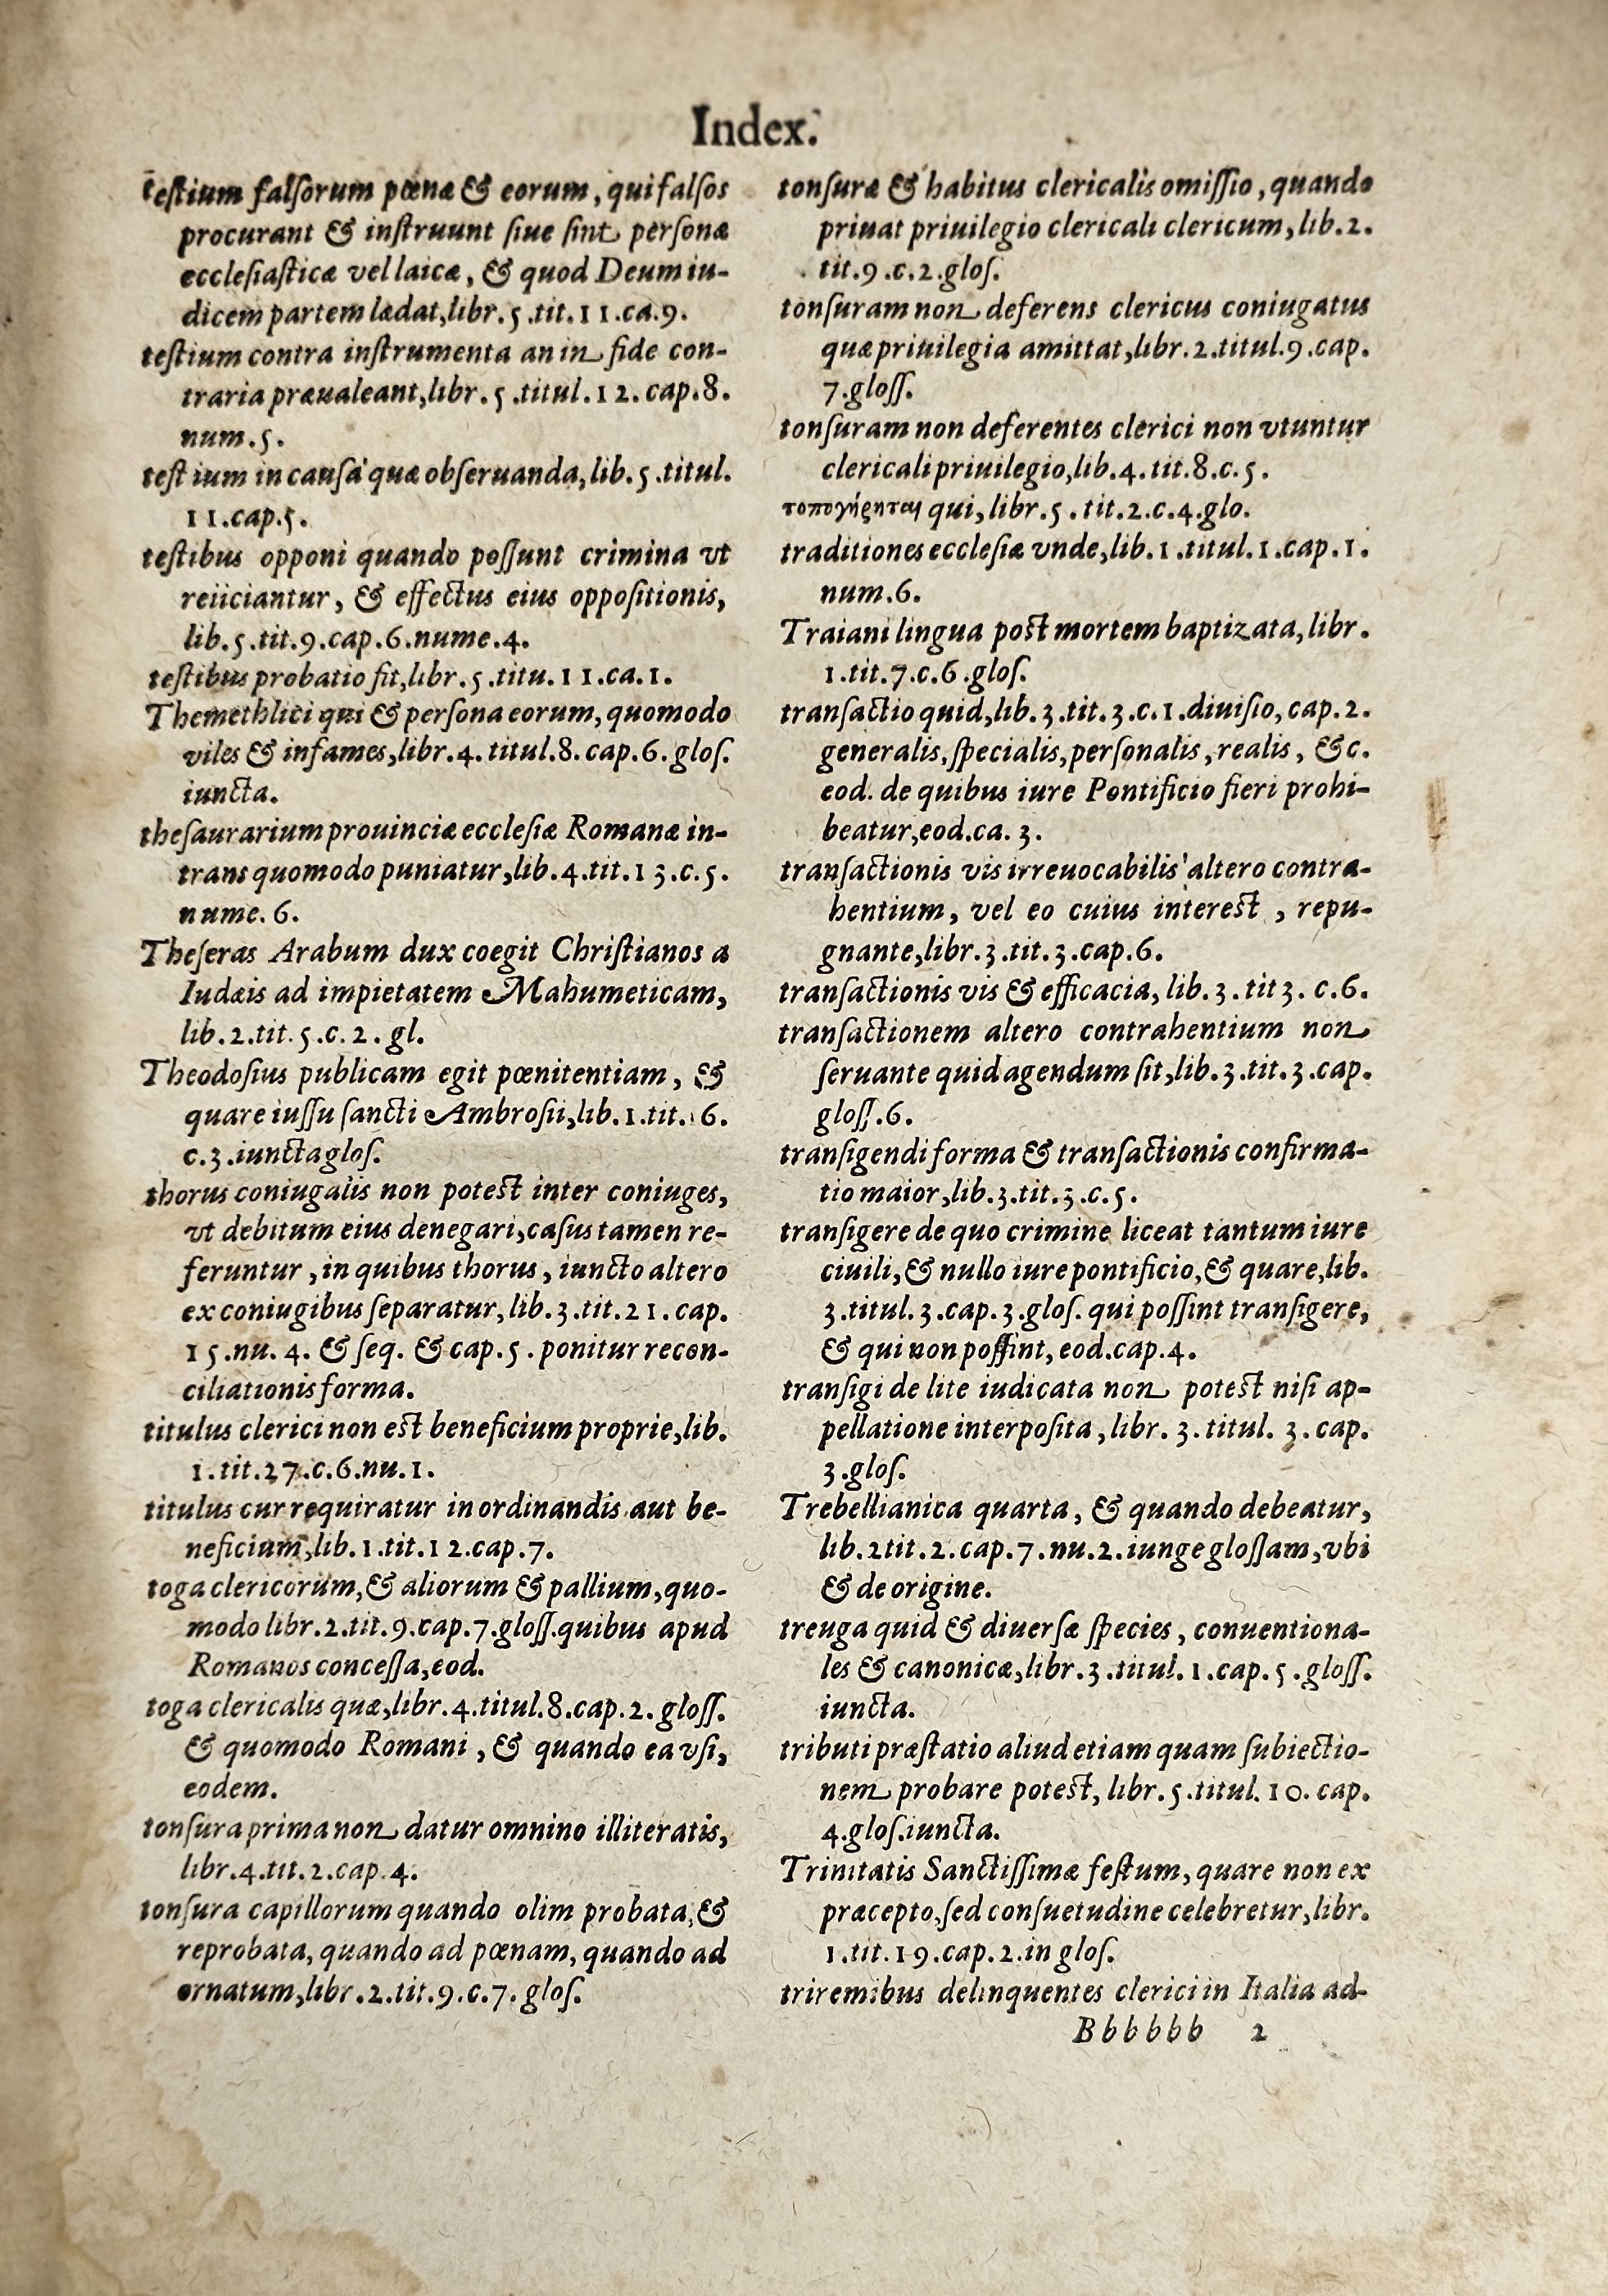 Index.
testium falsorum pœnæ & eorum, qui falsos
procurant & instruunt siue sint personæ
ecclesiasticæ vel laicæ, & quod Deum iu-
dicem partem lædat, libr. 5. tit. 11. ca. 9.
testium contra instrumenta an in fide con-
traria præualeant, libr. 5. titul. 12. cap. 8.
num. 5.
testium in causa quæ obseruanda, lib. 5. titul.
11. cap. 5.
testibus opponi quando possunt crimina vt
reiiciantur, & effectus eius oppositionis,
lib. 5. tit. 9. cap. 6. nume. 4.
testibus probatio fit, libr. 5. titu. 11. ca. 1.
Themethlici qui & persona eorum, quomodo
viles & infames, libr. 4. titul. 8. cap. 6. glos.
iuncta.
thesaurarium prouinciæ ecclesiæ Romanæ in-
trans quomodo puniatur, lib. 4. tit. 13. c. 5.
nume. 6.
Theseras Arabum dux coegit Christianos a
Iudæis ad impietatem Mahumeticam,
lib. 2. tit. 5. c. 2. gl.
Theodosius publicam egit pœnitentiam, &
quare iussu sancti Ambrosii, lib. 1. tit. 6.
c. 3. iuncta glos.
thorus coniugalis non potest inter coniuges,
vt debitum eius denegari, casus tamen re-
feruntur, in quibus thorus, iuncto altero
ex coniugibus separatur, lib. 3. tit. 21. cap.
15. nu. 4. & seq. & cap. 5. ponitur recon-
ciliationis forma.
titulus clerici non est beneficium proprie, lib.
1. tit. 27. c. 6. nu. 1.
titulus cur requiratur in ordinandis aut be-
neficium, lib. 1. tit. 12. cap. 7.
toga clericorum, & aliorum & pallium, quo-
modo libr. 2. tit. 9. cap. 7. gloss. quibus apud
Romanos concessa, eod.
toga clericalis quæ, libr. 4. titul. 8. cap. 2. gloss.
& quomodo Romani, & quando ea vsi,
eodem.
tonsura prima non datur omnino illiteratis,
libr. 4. tit. 2. cap. 4.
tonsura capillorum quando olim probata, &
reprobata, quando ad pœnam, quando ad
ornatum, libr. 2. tit. 9. c. 7. glos.
tonsuræ & habitus clericalis omissio, quando
priuat priuilegio clericali clericum, lib. 2.
tit. 9. c. 2. glos.
tonsuram non deferens clericus coniugatus
quæ priuilegia amittat, libr. 2. titul. 9. cap.
7. gloss.
tonsuram non deferentes clerici non vtuntur
clericali priuilegio, lib. 4. tit. 8. c. 5.
qui, libr. 5. tit. 2. c. 4. glo.
traditiones ecclesiæ vnde, lib. 1. titul. 1. cap. 1.
num. 6.
Traiani lingua post mortem baptizata, libr.
1. tit. 7. c. 6. glos.
transactio quid, lib. 3. tit. 3. c. 1. diuisio, cap. 2.
generalis, specialis, personalis, realis, &c.
eod. de quibus iure Pontificio fieri prohi-
beatur, eod. ca. 3.
transactionis vis irreuocabilis altero contra-
hentium, vel eo cuius interest, repu-
gnante, libr. 3. tit. 3. cap. 6.
transactionis vis & efficacia, lib. 3. tit 3. c. 6.
transactionem altero contrahentium non
seruante quid agendum sit, lib. 3. tit. 3. cap.
gloss. 6.
transigendi forma & transactionis confirma-
tio maior, lib. 3. tit. 3. c. 5.
transigere de quo crimine liceat tantum iure
ciuili, & nullo iure pontificio, & quare, lib.
3. titul. 3. cap. 3. glos. qui possint transigere,
& qui non possint, eod. cap. 4.
transigi de lite iudicata non potest nisi ap-
pellatione interposita, libr. 3. titul. 3. cap.
3. glos.
Trebellianica quarta, & quando debeatur,
lib. 2 tit. 2. cap. 7. nu. 2. iunge glossam, vbi
& de origine.
treuga quid & diuersæ species, conuentiona-
les & canonicæ, libr. 3. titul. 1. cap. 5. gloss.
iuncta.
tributi præstatio aliud etiam quam subiectio-
nem probare potest, libr. 5. titul. 10. cap.
4. glos. iuncta.
Trinitatis Sanctissimæ festum, quare non ex
præcepto, sed consuetudine celebretur, libr.
1. tit. 19. cap. 2. in glos.
triremibus delinquentes clerici in Italia ad-
Bbbbbb 2